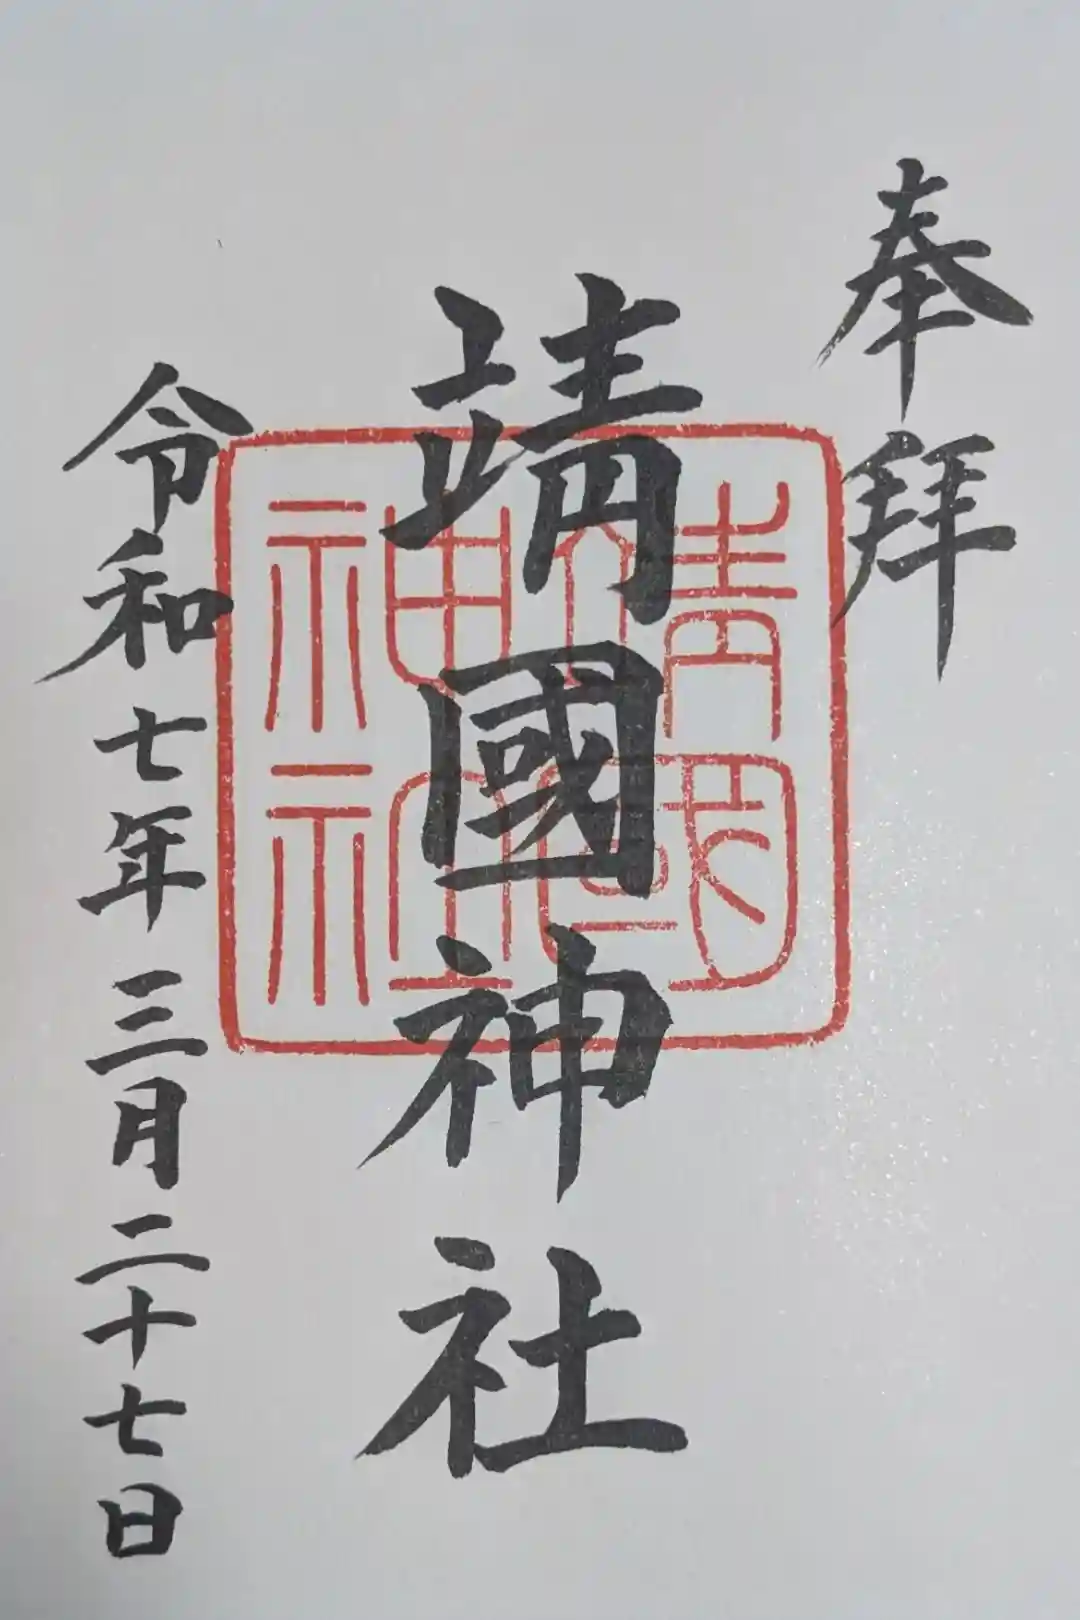 奉拝
靖國神社
靖國
神社
令和七年三月二十七日